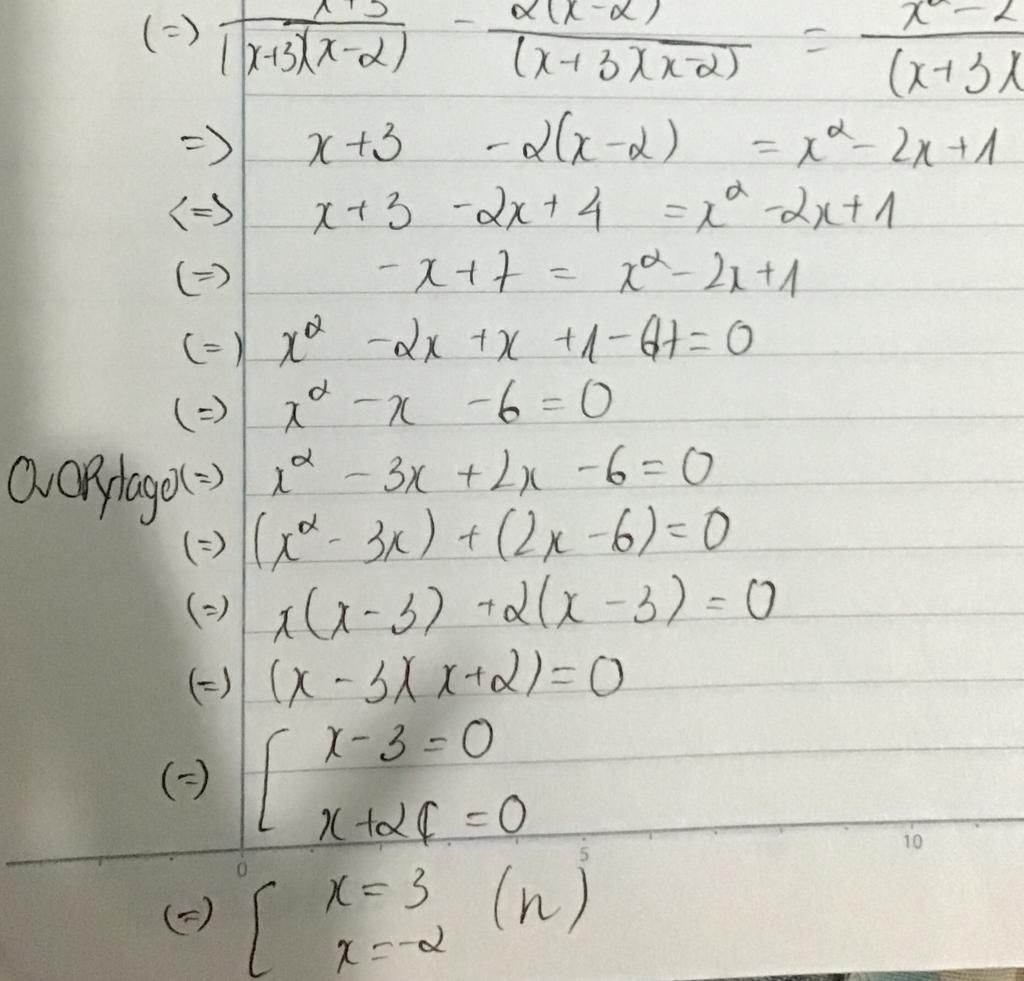 (=) x+3/(x+3)(x-2) - 2(x-2)/(x+3)(x-2) = x²-2/(x+3)(
=> x+3 -2(x-2) = x²-2x+1
<=> x+3 -2x+4 =x²-2x+1
(=) -x+7 = x²-2x+1
(=) x² -2x +x +1- =0
(=) x² -x -6=0
(=) x² -3x +2x -6=0
(=) (x²-3x)+(2x-6)=0
(=) x(x-3) +2(x-3)=0
(=) (x-3)(x+2)=0
(=) [ x-3=0
x+2 =0
0 5 10
(=) [ x=3 (n)
x=-2